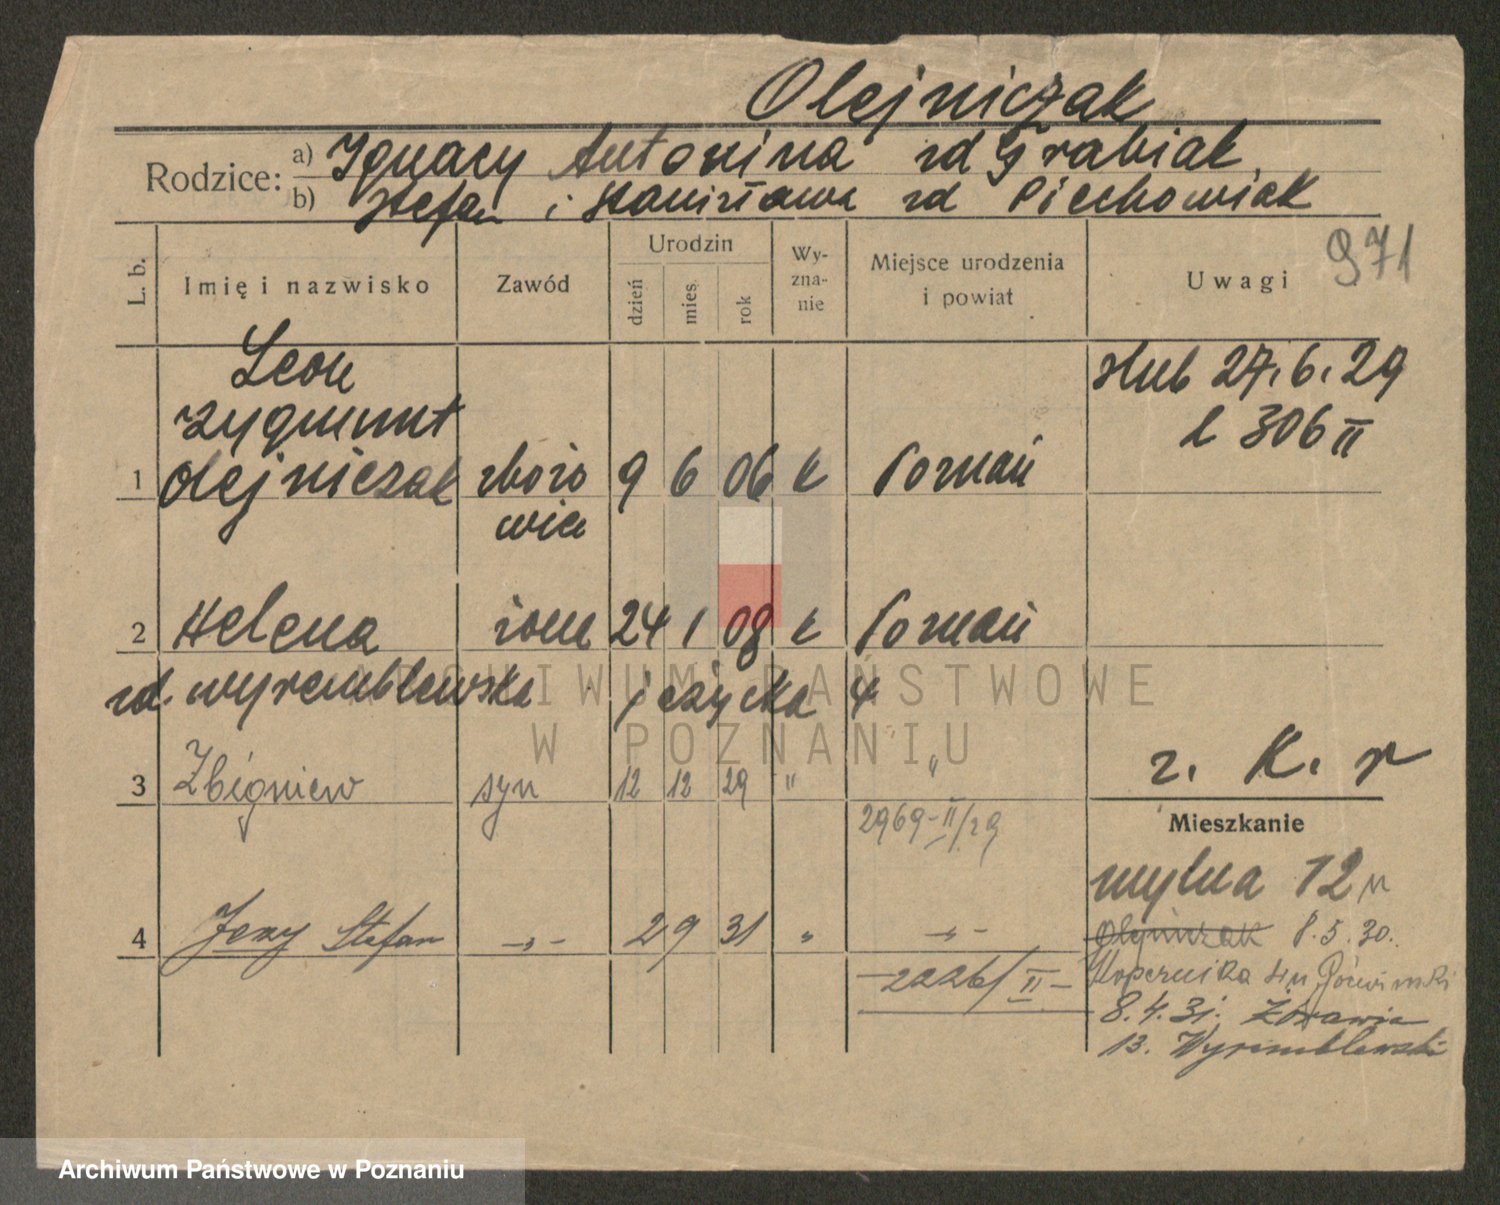 Olejniczak
Rodzice: a) Ignacy Antonina zd Grabiak
b) Stefan i Stanisława zd Piechowiak
971
L. b. Imię i nazwisko Zawód Urodzin dzień mies rok Wy-zna-nie Miejsce urodzenia i powiat Uwagi
Leon
Zygmunt
1 Olejniczak zbożo 9 6 06 k Poznań
wiec
ślub 27.6.29
l 306 II
2 Helena żona 24 1 08 k Poznań
zd. Wyremblewska Jeżycka 4
z. K. r
3 Zbigniew syn 12 12 29 " "
2969-II/29
Mieszkanie
mylna 12
4 Jerzy Stefan -„- 2 9 31 „ -„-
2226/II-
Olejniczak 8.5.30.
Kopernika
8.4.31. Żórawia
13. Wyremblewski
ARCHIWUM PAŃSTWOWE
W POZNANIU
Archiwum Państwowe w Poznaniu